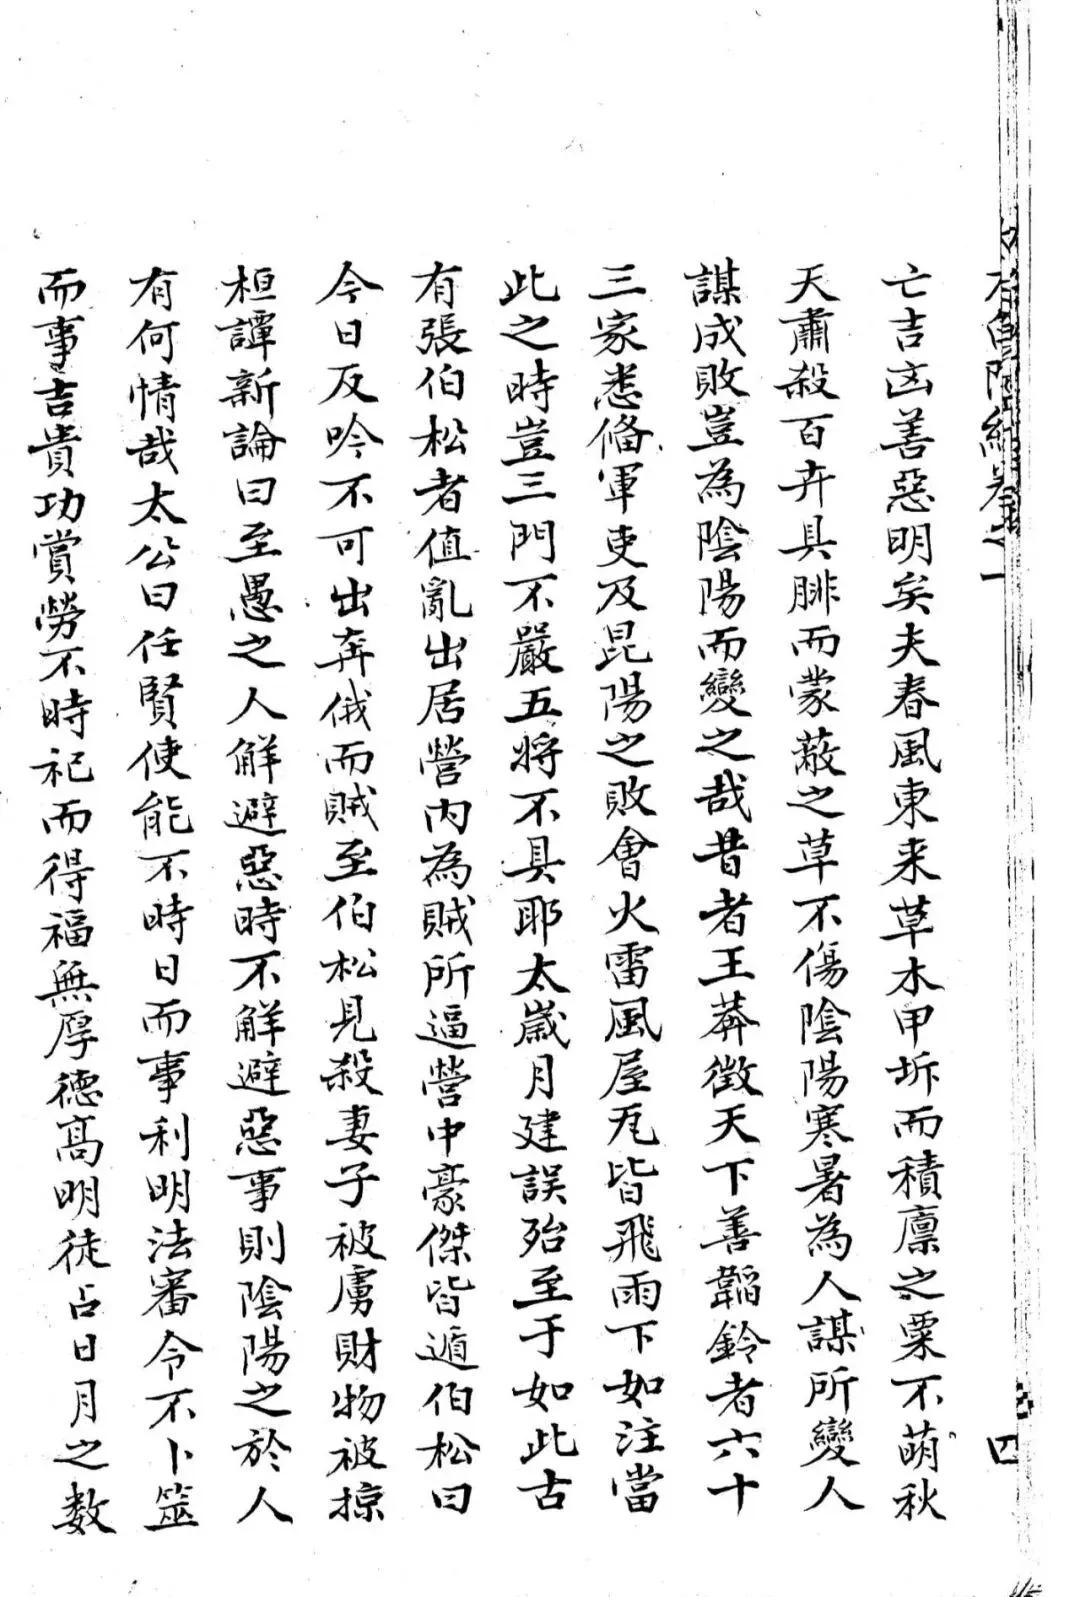 陰經卷之一 四
亡吉凶善惡明矣夫春風東来草木甲坼而積廩之粟不萌秋
天肅殺百卉具腓而蒙蔽之草不傷陰陽寒暑為人謀所變人
謀成敗豈為陰陽而變之哉昔者王莽徵天下善韜鈴者六十
三家悉俻軍吏及昆陽之敗會火雷風屋瓦皆飛雨下如注當
此之時豈三門不嚴五将不具耶太歲月建誤殆至于如此古
有張伯松者值亂出居營内為賊所逼營中豪傑皆遁伯松曰
今日反吟不可出奔俄而賊至伯松見殺妻子被虜財物被掠
桓譚新論曰至愚之人解避惡時不解避惡事則陰陽之於人
有何情哉太公曰任賢使能不時日而事利明法審令不卜筮
而事吉貴功賞勞不時祀而得福無厚德髙明徒占日月之数